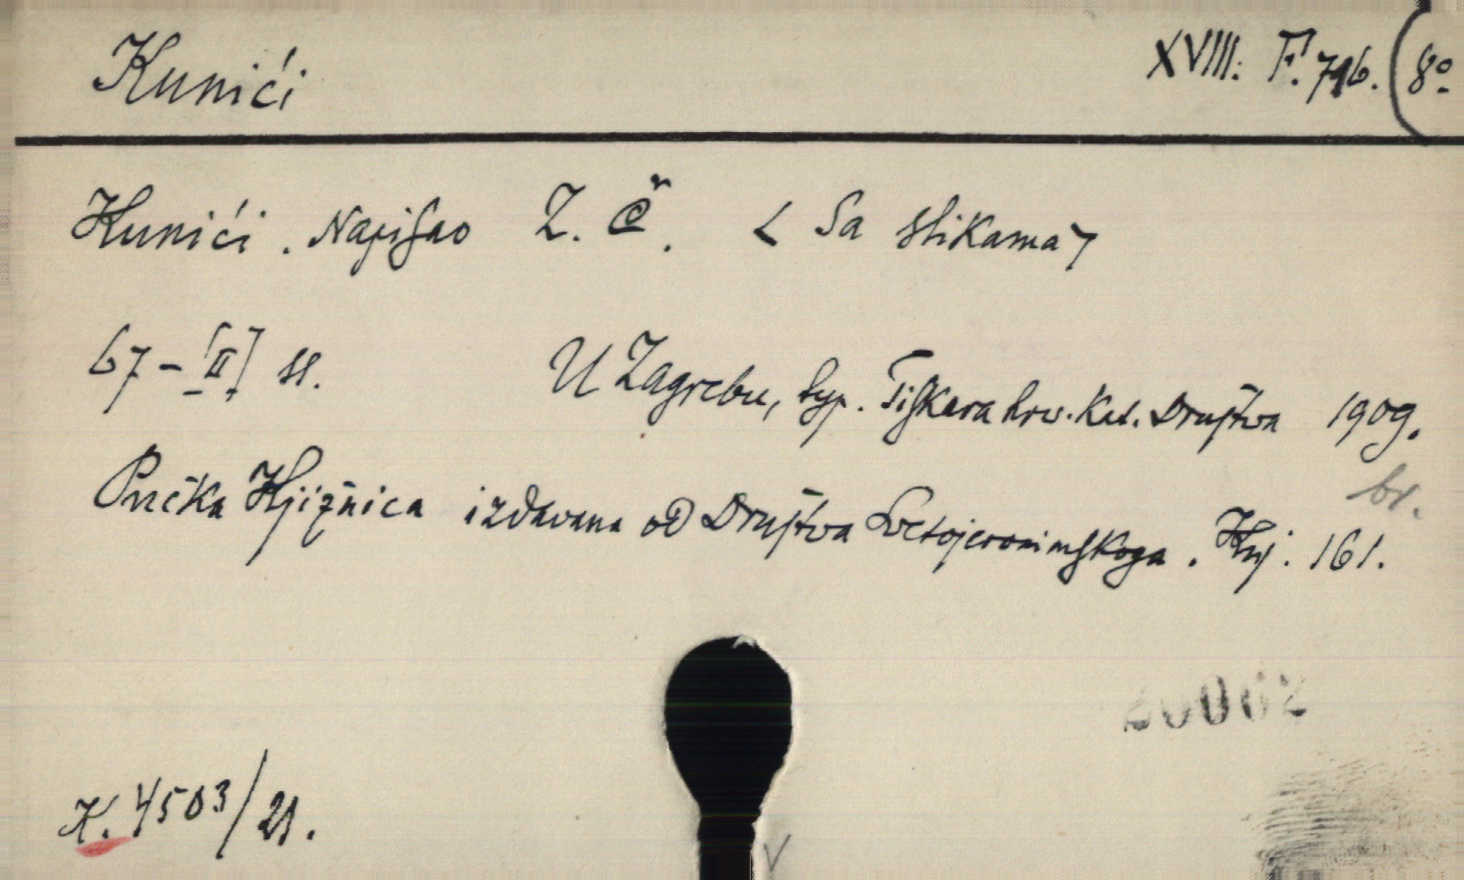 Kunići XVIII. F. 746. (8º
Kunići. Napisao Z. Č. < Sa slikama >
67 - [II] st. U Zagrebu, typ. Tiskara hrv. Kat. Društva 1909.
Pučka Knjižnica izdavana od Društva Svetojeronimskoga. Knj. 161.
br.
20062
K. 4503/21.